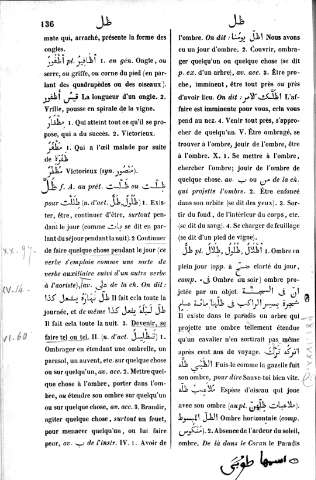 136
ظل
ظل
mate qui, arraché, présente la forme des
ongles.
أُظْفُور pl. أَظَافِير 1. en gén. Ongle, ou
serre, ou griffe, ou corne du pied (en par-
lant des quadrupèdes ou des oiseaux).
قيس أظفور La longueur d'un ongle. 2.
Vrille, pousse en spirale de la vigne.
مظفار 1. Qui atteint tout ce qu'il se pro-
pose, qui a du succès. 2. Victorieux.
1. Qui a l'œil malade par suite
de ظفرة
Victorieux (منصور syn.).
ظل f. A. au prét. ظللت — ظلت ou
pour (n. d'act. ظل, ظلول) 1. Exis-
ter, être, continuer d'être, surtout pen-
dant le jour (comme بات se dit en par-
lant du séjour pendant la nuit). 2. Continuer
de faire quelque chose pendant le jour (ce
verbe s'emploie comme une sorte de
verbe auxiliaire suivi d'un autre verbe
à l'aoriste), av. على de la ch. On dit :
ظل نهاره يفعل كذا Il fait cela toute la
journée, et de même ظل ليله يفعل كذا
Il fait cela toute la nuit. 3. Devenir, se
faire tel ou tel. II. (n. d'act. تظليل) 1.
Ombrager en étendant une ombrelle, un
parasol, un auvent, etc. sur quelque chose
ou sur quelqu'un, av. acc. 2. Mettre quel-
que chose à l'ombre, porter dans l'om-
bre, ou étendre son ombre sur quelqu'un
ou sur quelque chose, av. acc. 3. Brandir,
agiter quelque chose, surtout un fouet,
pour menacer quelqu'un, ou lui faire
peur, av. ب de l'instr. IV. 1. Avoir de
l'ombre. On dit : أظل يومنا Nous avons
eu un jour d'ombre. 2. Couvrir, ombra-
ger quelqu'un ou quelque chose (se dit
p. ex. d'un arbre), av. acc. 3. Être pro-
che, imminent, être tout près ou près
d'avoir lieu. On dit : أظلك الأمر L'af-
faire est imminente pour vous, ora cela vous
pend au nez. 4. Venir tout près, s'appro-
cher de quelqu'un. V. Être ombragé, se
trouver à l'ombre, jouir de l'ombre, être
à l'ombre. X. 1. Se mettre à l'ombre,
chercher l'ombre; jouir de l'ombre de
quelque chose. av. ب ou من de la ch.
qui projette l'ombre. 2. Être enfoncé
dans son orbite (se dit des yeux). 3. Sor-
tir du fond, de l'intérieur du corps, etc.
(se dit du sang). 4. Se charger de feuillage
(se dit d'un pied de vigne).
ظل pl. ظلال, ظلول, أظلال 1. Ombre en
plein jour (opp. à ضح clarté du jour,
comp. فيء Ombre du soir) ombre pro-
jetée par un objet. إن في الجنة
شجرة يسير الراكب في ظلها مائة عام
Il existe dans le paradis un arbre qui
projette une ombre tellement étendue
qu'un cavalier n'en sortirait pas même
après cent ans de voyage. أتركه ترك
الظبي ظله Fuis-le comme la gazelle fuit
son ombre, pour dire Sauve-toi bien vite.
ملاعب ظله Espèce d'oiseau qui joue
avec son ombre (au pl. ملاعبات ظلهن).
الظل المبسوط Ombre horizontale (comp.
منكوس). 2. Absence de l'ardeur du soleil,
ombre. De là dans le Coran le Paradis
XX.97.
IV.14.
VI.60